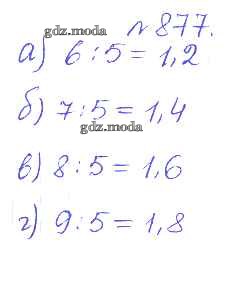 №877.
gdz.moda
а) 6:5=1,2
б) 7:5=1,4
gdz.moda
в) 8:5=1,6
г) 9:5=1,8